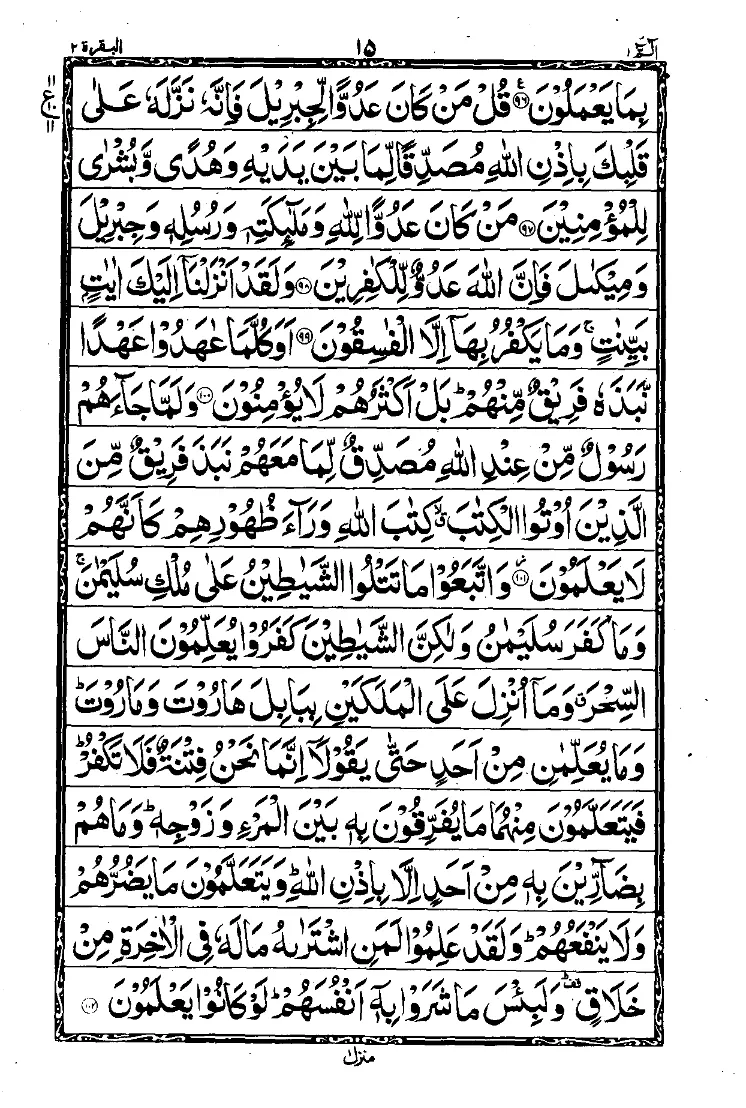 الٓمّٓ ١ ١٥ البقرة ٢
بِمَا یَعْمَلُوْنَ ۝٩٦ قُلْ مَنْ كَانَ عَدُوًّا لِّجِبْرِیْلَ فَاِنَّهٗ نَزَّلَهٗ عَلٰى
قَلْبِكَ بِاِذْنِ اللّٰهِ مُصَدِّقًا لِّمَا بَیْنَ یَدَیْهِ وَهُدًى وَّبُشْرٰى
لِلْمُؤْمِنِیْنَ ۝٩٧ مَنْ كَانَ عَدُوًّا لِّلّٰهِ وَمَلٰٓىِٕكَتِهٖ وَرُسُلِهٖ وَجِبْرِیْلَ
وَمِیْكٰىلَ فَاِنَّ اللّٰهَ عَدُوٌّ لِّلْكٰفِرِیْنَ ۝٩٨ وَلَقَدْ اَنْزَلْنَاۤ اِلَیْكَ اٰیٰتٍۭ
بَیِّنٰتٍ ۚ وَمَا یَكْفُرُ بِهَاۤ اِلَّا الْفٰسِقُوْنَ ۝٩٩ اَوَكُلَّمَا عٰهَدُوْا عَهْدًا
نَّبَذَهٗ فَرِیْقٌ مِّنْهُمْ ؕ بَلْ اَكْثَرُهُمْ لَا یُؤْمِنُوْنَ ۝١٠٠ وَلَمَّا جَآءَهُمْ
رَسُوْلٌ مِّنْ عِنْدِ اللّٰهِ مُصَدِّقٌ لِّمَا مَعَهُمْ نَبَذَ فَرِیْقٌ مِّنَ
الَّذِیْنَ اُوْتُوا الْكِتٰبَ ۙۗ كِتٰبَ اللّٰهِ وَرَآءَ ظُهُوْرِهِمْ كَاَنَّهُمْ
لَا یَعْلَمُوْنَ ۝١٠١ وَاتَّبَعُوْا مَا تَتْلُوا الشَّیٰطِیْنُ عَلٰى مُلْكِ سُلَیْمٰنَ ۚ
وَمَا كَفَرَ سُلَیْمٰنُ وَلٰكِنَّ الشَّیٰطِیْنَ كَفَرُوْا یُعَلِّمُوْنَ النَّاسَ
السِّحْرَ ۗ وَمَاۤ اُنْزِلَ عَلَى الْمَلَكَیْنِ بِبَابِلَ هَارُوْتَ وَمَارُوْتَ ؕ
وَمَا یُعَلِّمٰنِ مِنْ اَحَدٍ حَتّٰى یَقُوْلَاۤ اِنَّمَا نَحْنُ فِتْنَةٌ فَلَا تَكْفُرْ ؕ
فَیَتَعَلَّمُوْنَ مِنْهُمَا مَا یُفَرِّقُوْنَ بِهٖ بَیْنَ الْمَرْءِ وَزَوْجِهٖ ؕ وَمَا هُمْ
بِضَآرِّیْنَ بِهٖ مِنْ اَحَدٍ اِلَّا بِاِذْنِ اللّٰهِ ؕ وَیَتَعَلَّمُوْنَ مَا یَضُرُّهُمْ
وَلَا یَنْفَعُهُمْ ؕ وَلَقَدْ عَلِمُوْا لَمَنِ اشْتَرٰىهُ مَا لَهٗ فِی الْاٰخِرَةِ مِنْ
خَلَاقٍ ۫ؕ وَلَبِئْسَ مَا شَرَوْا بِهٖۤ اَنْفُسَهُمْ ؕ لَوْ كَانُوْا یَعْلَمُوْنَ ۝١٠٢
منزل ١